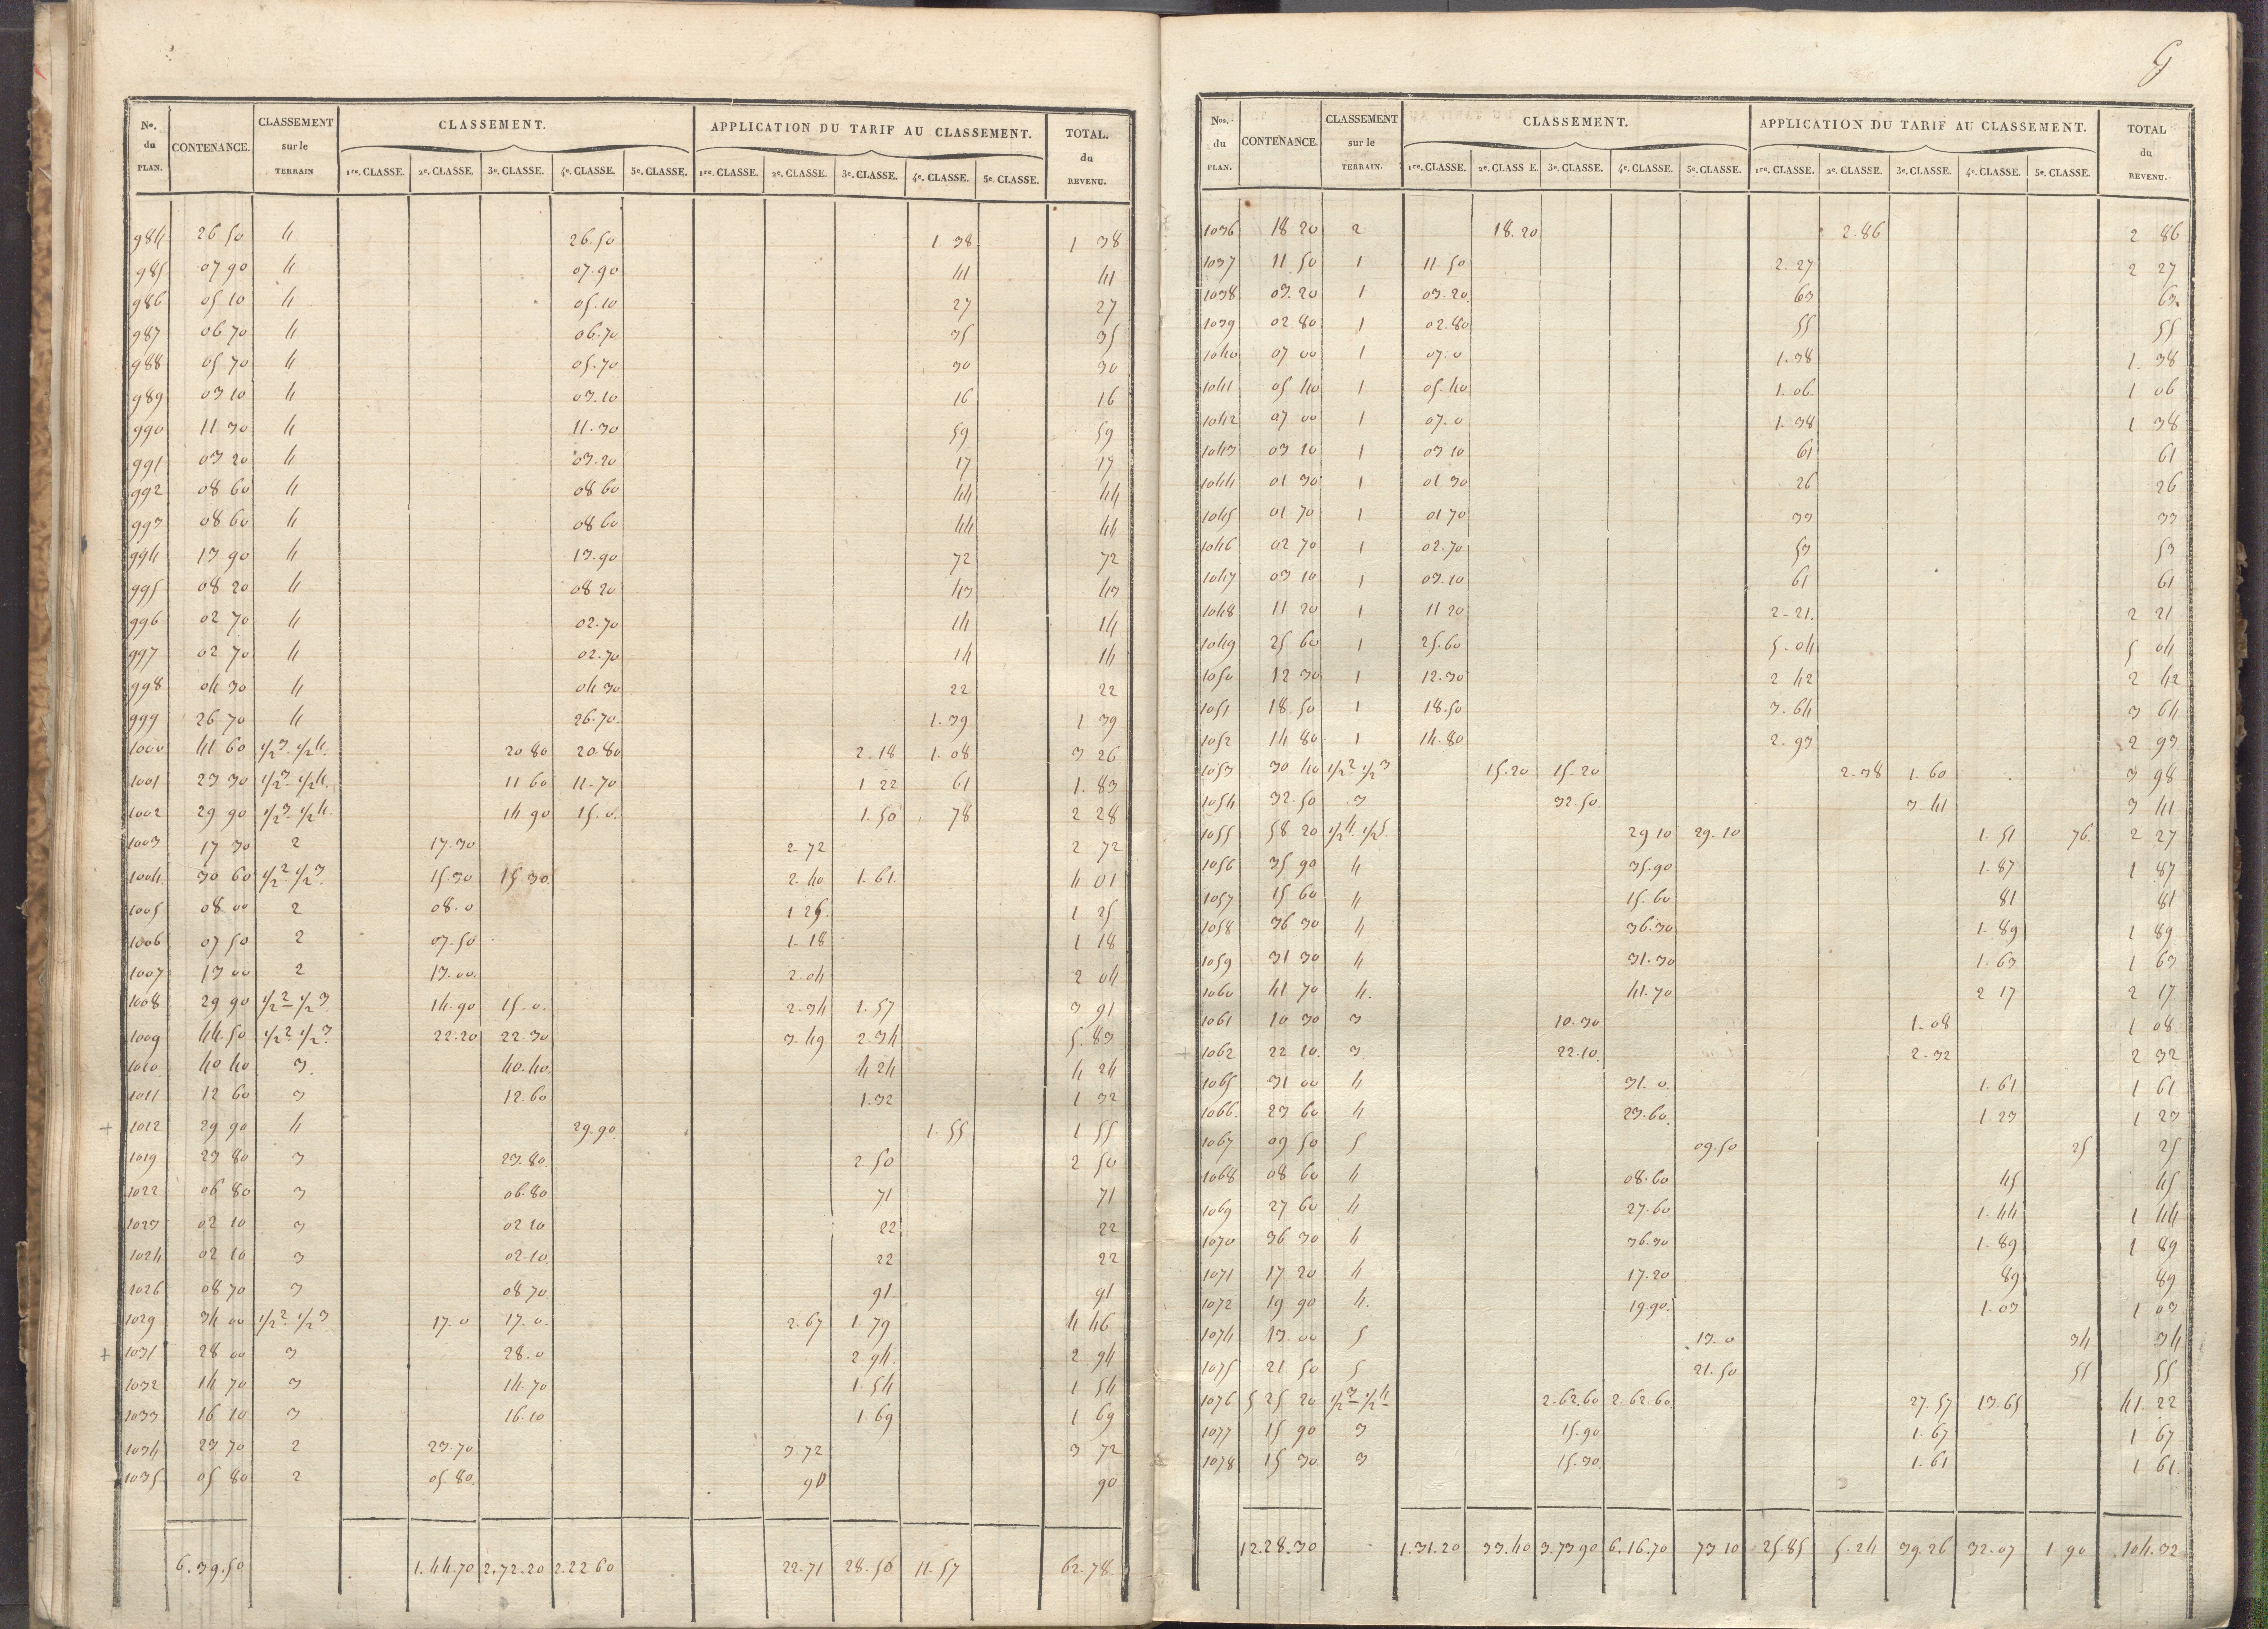 No. du PLAN. CONTENANCE. CLASSEMENT sur le TERRAIN CLASSEMENT. APPLICATION DU TARIF AU CLASSEMENT. TOTAL. du REVENU.
1re. CLASSE. 2e. CLASSE. 3e. CLASSE. 4e. CLASSE. 5e. CLASSE. 1re. CLASSE. 2e. CLASSE. 3e. CLASSE. 4e. CLASSE. 5e. CLASSE.
984 26 50 4 26.50 1.38 1 38
985 07 90 4 07.90 41 41
986 05 10 4 05.10 27 27
987 06 70 4 06.70 35 35
988 05 70 4 05.70 30 30
989 03 10 4 03.10 16 16
990 11 30 4 11.30 59 59
991 03 20 4 03.20 17 17
992 08 60 4 08 60 44 44
993 08 60 4 08 60 44 44
994 13 90 4 13.90 72 72
995 08 20 4 08 20 43 43
996 02 70 4 02.70 14 14
997 02 70 4 02.70 14 14
998 04 30 4 04 30 22 22
999 26 70 4 26.70. 1.39 1 39
1000 41 60 1/2 3. 1/2 4. 20 80 20.80 2.18 1.08 3 26
1001 23 30 1/2 3. 1/2 4. 11 60 11.70 1 22 61 1.83
1002 29 90 1/2 3. 1/2 4. 14 90 15.0. 1.50 78 2 28
1003 17 30 2 17.30 2.72 2 72
1004 30 60 1/2 2. 1/2 3. 15.30 15.30. 2.40 1.61. 4 01
1005 08 00 2 08.0 1 25. 1 25
1006 07 50 2 07.50 1.18 1 18
1007 13 00 2 13.00. 2.04 2 04
1008 29 90 1/2 2 1/2 3. 14.90 15.0. 2.34 1.57 3 91
1009 44.50 1/2 2 1/2 3. 22.20 22.30 3.49 2.34 5.83
1010 40 40 3. 40.40. 4 24 4 24
1011 12 60 3 12.60 1.32 1 32
+ 1012 29 90 4 29.90. 1.55 1 55
1019 23 80 3 23.80. 2 50 2 50
1022 06 80 3 06.80 71 71
1023 02 10 3 02 10 22 22
1024 02 10 3 02.10. 22 22
1026 08 70 3 08 70. 91. 91
1029 34 00 1/2 2. 1/2 3 17.0 17.0. 2.67 1.79 4 46
+ 1031 28 00 3 28.0 2.94. 2.94
1032 14 70 3 14.70 1.54 1 54
1033 16 10 3 16.10 1.69 1 69
1034 23 70 2 23.70 3.72 3 72
1035 05 80 2 05.80. 90 90
6.39.50 1.44.70 2.72.20 2.22 60 22.71 28.50 11.57 62.78.
G
Nos. du PLAN. CONTENANCE. CLASSEMENT sur le TERRAIN. CLASSEMENT. APPLICATION DU TARIF AU CLASSEMENT. TOTAL du REVENU.
1re. CLASSE. 2e. CLASS E. 3e. CLASSE. 4e. CLASSE. 5e. CLASSE. 1re. CLASSE. 2e. CLASSE. 3e. CLASSE. 4e. CLASSE. 5e. CLASSE.
1036 18 20 2 18.20 2.86 2 86
1037 11 50 1 11.50 2.27 2 27
1038 03.20 1 03.20. 63 63.
1039 02 80 1 02.80 55 55
1040 07 00 1 07.0 1.38 1.38
1041 05 40 1 05.40 1.06. 1 06
1042 07 00 1 07.0 1.38 1 38
1043 03 10 1 03 10 61 61
1044 01 30 1 01 30 26 26
1045 01 70 1 01 70 33 33
1046 02 70 1 02.70 53 53
1047 03 10 1 03.10 61 61
1048 11 20 1 11 20 2-21. 2 21
1049 25 60 1 25.60 5.04 5 04
1050 12 30 1 12.30 2 42 2 42
1051 18.50 1 18.50 3.64 3 64
1052 14 80 1 14.80 2.93 2 93
1053 30 40 1/2 2 1/2 3 15.20 15.20 2.38 1.60 3 98
1054 32.50 3 32.50. 3.41 3 41
1055 58 20 1/2 4. 1/2 5. 29 10 29.10 1.51 76. 2 27
1056 35 90 4 35.90 1.87 1 87
1057 15 60 4 15.60 81 81
1058 36 30 4 36.30 1.89 1 89
1059 31 30 4 31.30 1.63 1 63
1060 41 70 4. 41.70 2 17 2 17
1061 10 30 3 10.30 1.08 1 08
1062 22 10. 3 22.10. 2.32 2 32
1065 31 00 4 31.0. 1.61 1 61
1066. 23 60 4 23.60. 1.23 1 23
1067 09 50 5 09.50 25 25
1068 08 60 4 08.60 45 45
1069 27 60 4 27.60 1.44 1 44
1070 36 30 4 36.30 1.89 1 89
1071 17 20 4 17.20 89 89
1072 19 90 4. 19.90. 1.03 1 03
1074 13.00 5 13.0 34 34
1075 21 50 5 21.50 55 55
1076 5 25 20 1/2 3 1/2 4 2.62.60 2.62.60. 27.57 13.65 41.22
1077 15 90 3 15.90 1.67 1 67
1078 15 30 3 15.30. 1.61 1 61.
12.28.30 1.31.20 33.40 3.73 90 6.16.70 73 10 25.85 5.24 39.26 32.07 1.90 104.32